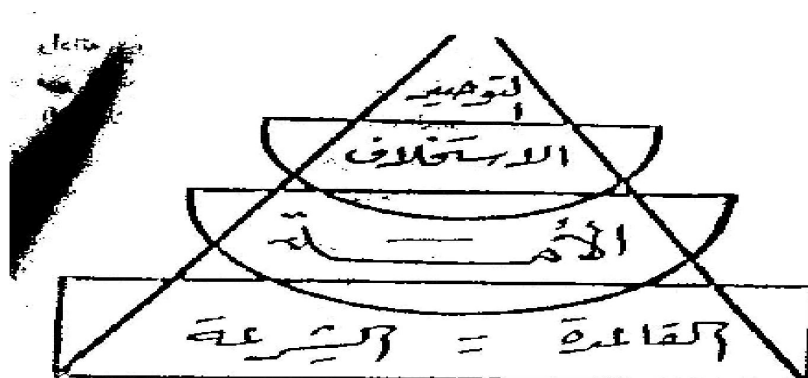 التوحيد
الاستخلاف
الأمة
القاعدة = الشرعة